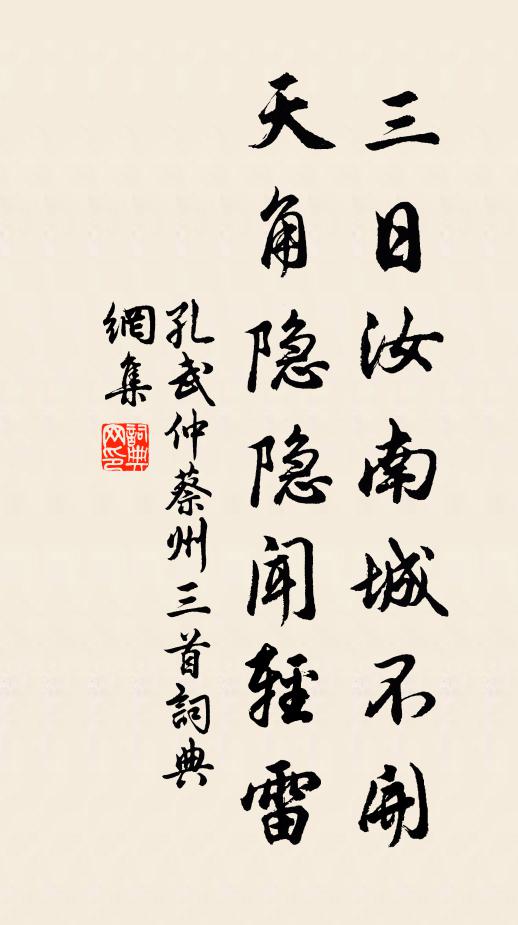 三日汝南城不開
天角隐隐闻輕雷
孔武仲蔡州三首詞典
網集
詞典
网印